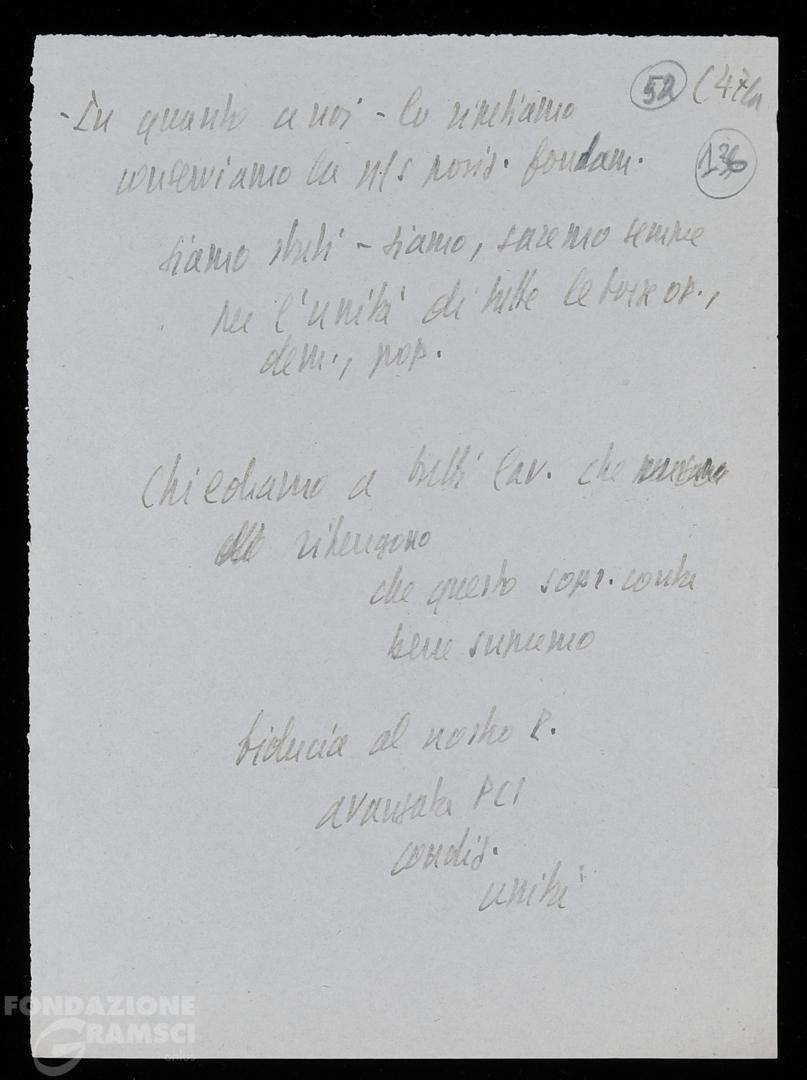 52
136
- In quanto a noi - lo ripetiamo
conserviamo la n/s posiz. fondam.
siamo stati - siamo, saremo sempre
per l'unità di tutte le forze op.,
dem., pop.
Chiediamo a tutti lav. che
ritengono
che questo sopr. conta
bene supremo
fiducia al nostro P.
avanzata PCI
condiz.
unità
FONDAZIONE
GRAMSCI
onlus